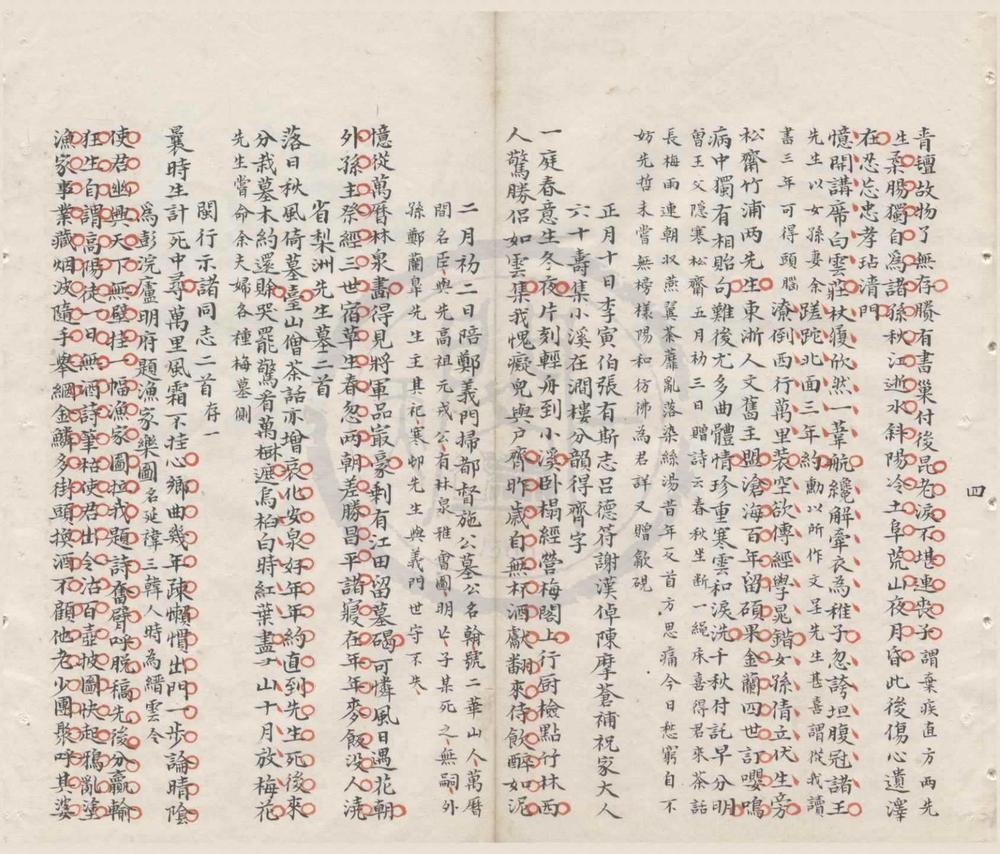 青氊故物了無存賸有書巢付後昆老淚不堪連喪子謂棄疾直方兩先
生柔腸獨自爲諸孫秋江逝水斜陽冷土阜荒山夜月昏此後傷心遺澤
在忍忘忠孝玷清門
憶開講席白雲莊杖履欣然一葦航纔解牽衣為稚子忽誇坦腹冠諸王
先生以女孫妻余蹉跎北面三年約勳以所作文呈先生甚喜謂從我讀
書三年可得頭腦潦倒西行萬里裝空欲傳經學晁錯女孫倩立伏生旁
松齋竹浦兩先生東浙人文舊主盟滄海百年留碩果金蘭四世訂嚶鳴
病中獨有相貽句難後尤多曲體情珍重寒雲和淚洗千秋付託早分明
曾王父隱寒松齋五月初三日贈詩云春秋生斷一繩床喜得君來茶話
長梅雨連朝收燕翼茶蘼亂落染絲湯昔年反首方思痛今日愁窮自不
妨先哲未嘗無榜樣陽和彷彿為君詳又贈歙硯
正月十日李寅伯張有斯志呂德符謝漢倬陳摩蒼補祝家大人
六十壽集小溪在澗樓分韻得齊字
一庭春意生冬夜片刻輕舟到小溪卧榻經營梅閣上行厨檢點竹林西
人驚勝侣如雲集我愧癡兒與戶齊昨歲自無杯酒獻翻來侍飲醉如泥
二月初二日陪鄭義門掃都督施公墓公名翰號二華山人萬曆
間名臣與先高祖元戎公有林泉雅會圖明亡子某死之無嗣外
孫鄭蘭皐先生主其祀寒邨先生與義門世守不失
憶從萬曆林泉畫得見將軍品最豪剩有江田留墓碣可憐風日遇花朝
外孫主祭經三世宿草生春忽兩朝差勝昌平諸寢在年年麥飯没人澆
省梨洲先生墓二首
落日秋風倚墓臺山僧茶話亦增哀化安泉好年年約直到先生死後來
分栽墓木約還賒哭罷驚看萬樹遮烏桕白時紅葉盡一山十月放梅花
先生嘗命余夫婦各種梅墓側
閩行示諸同志二首存一
曩時生計死中尋萬里風霜不挂心鄉曲幾年疎懶慣出門一步論晴陰
爲彭浣廬明府題漁家樂圖名延諱三韓人時為縉雲令
使君幽興天下無壁挂一幅漁家圖拉我題詩奮臂呼脱稿先後分贏輸
狂生自謂高陽徒一日無酒詩筆枯使君出令沽百壺披圖快起鴉亂塗
漁家事業藏烟波隨手舉網金鱗多街頭換酒不顧他老少團聚呼其婆
四